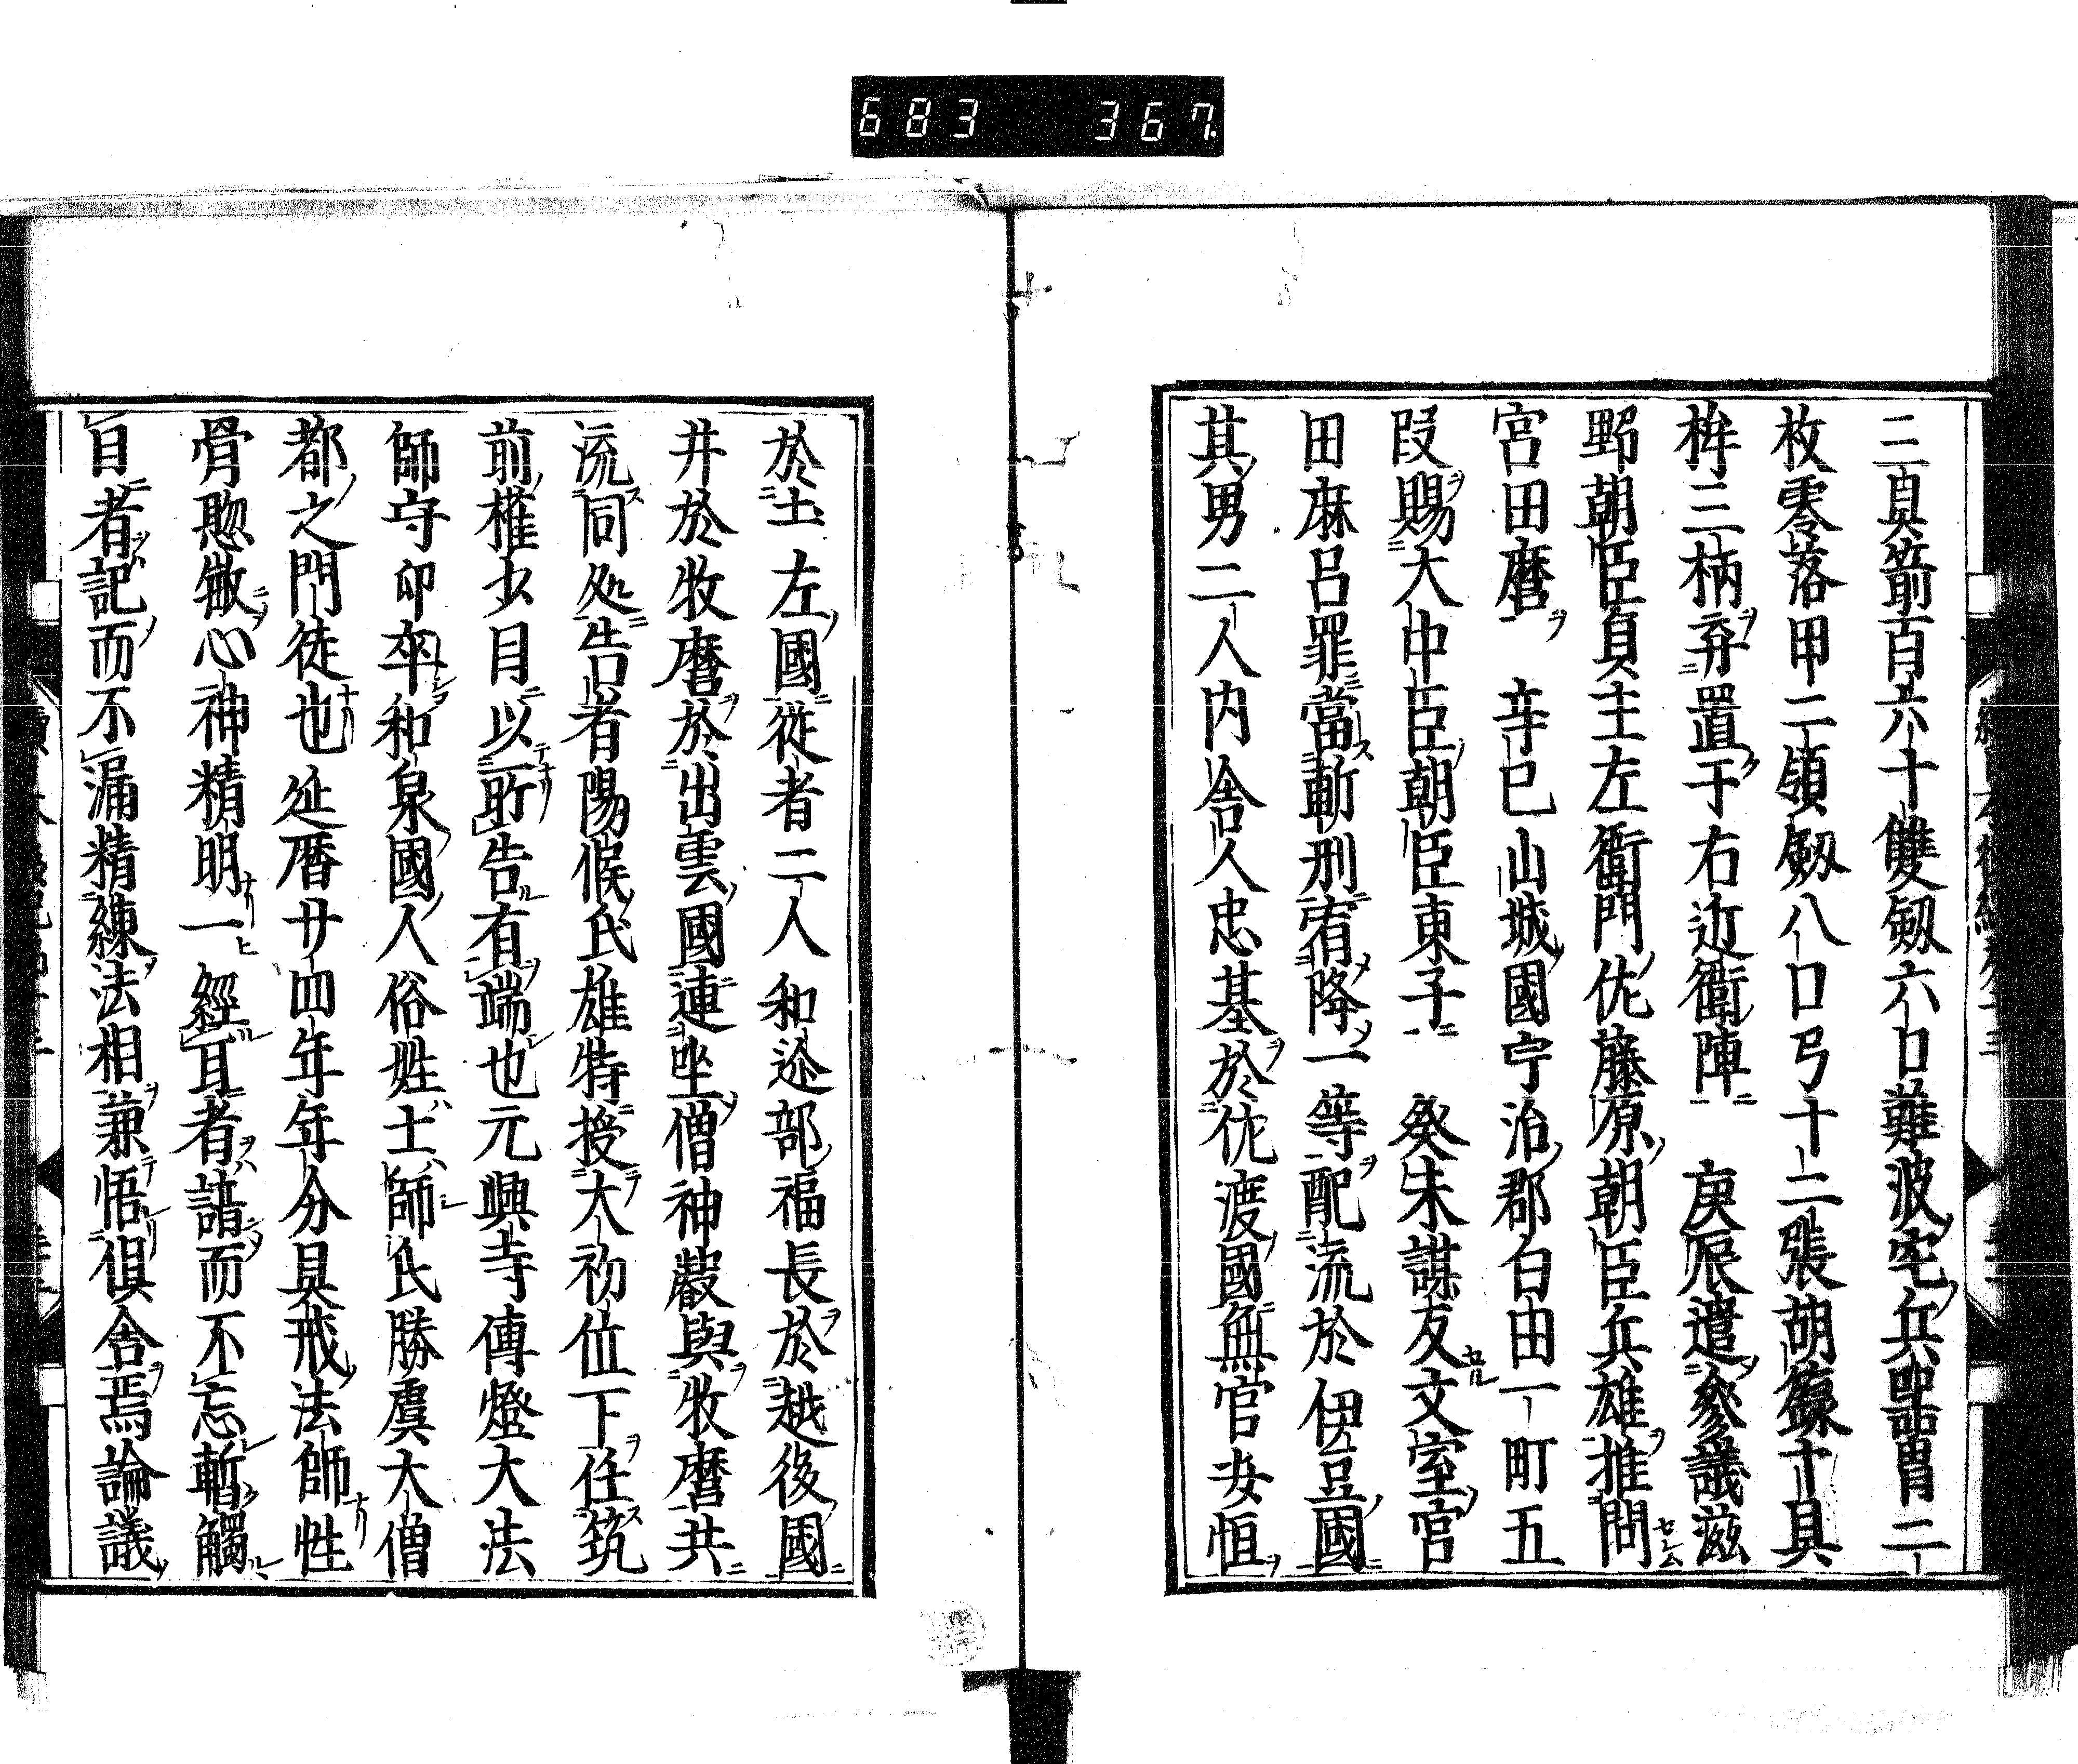 683 367
二真箭百六十雙劔六口難波宅兵噐冑二
枚零落甲二領劔八口弓十二張胡籙十具
桙三柄弃置于右近衞陣 庚辰遣參議滋
野朝臣貞主左衞門佐藤原朝臣兵雄推問
宮田麿 辛巳山城國宇治郡白田一町五
段賜大中臣朝臣東子 癸未謀反文室宮
田麻呂罪當斬刑宥降一等配流於伊豆國
其男二人内舍人忠基於佐渡國無官安恒
於土左國從者二人和迩部福長於越後國
井於牧麿於出雲國連坐僧神巖與牧麿共
流同処告者陽侯氏雄特授大初位下任筑
前權少目以所告有端也元興寺傳燈大法
師守印卒和泉國人俗姓土師氏勝虞大僧
都之門徒也延暦廿四年年分具戒法師性
骨聡敏心神精明一經耳者諳而不忘暫觸
目者記而不漏精練法相兼悟倶舎焉論議